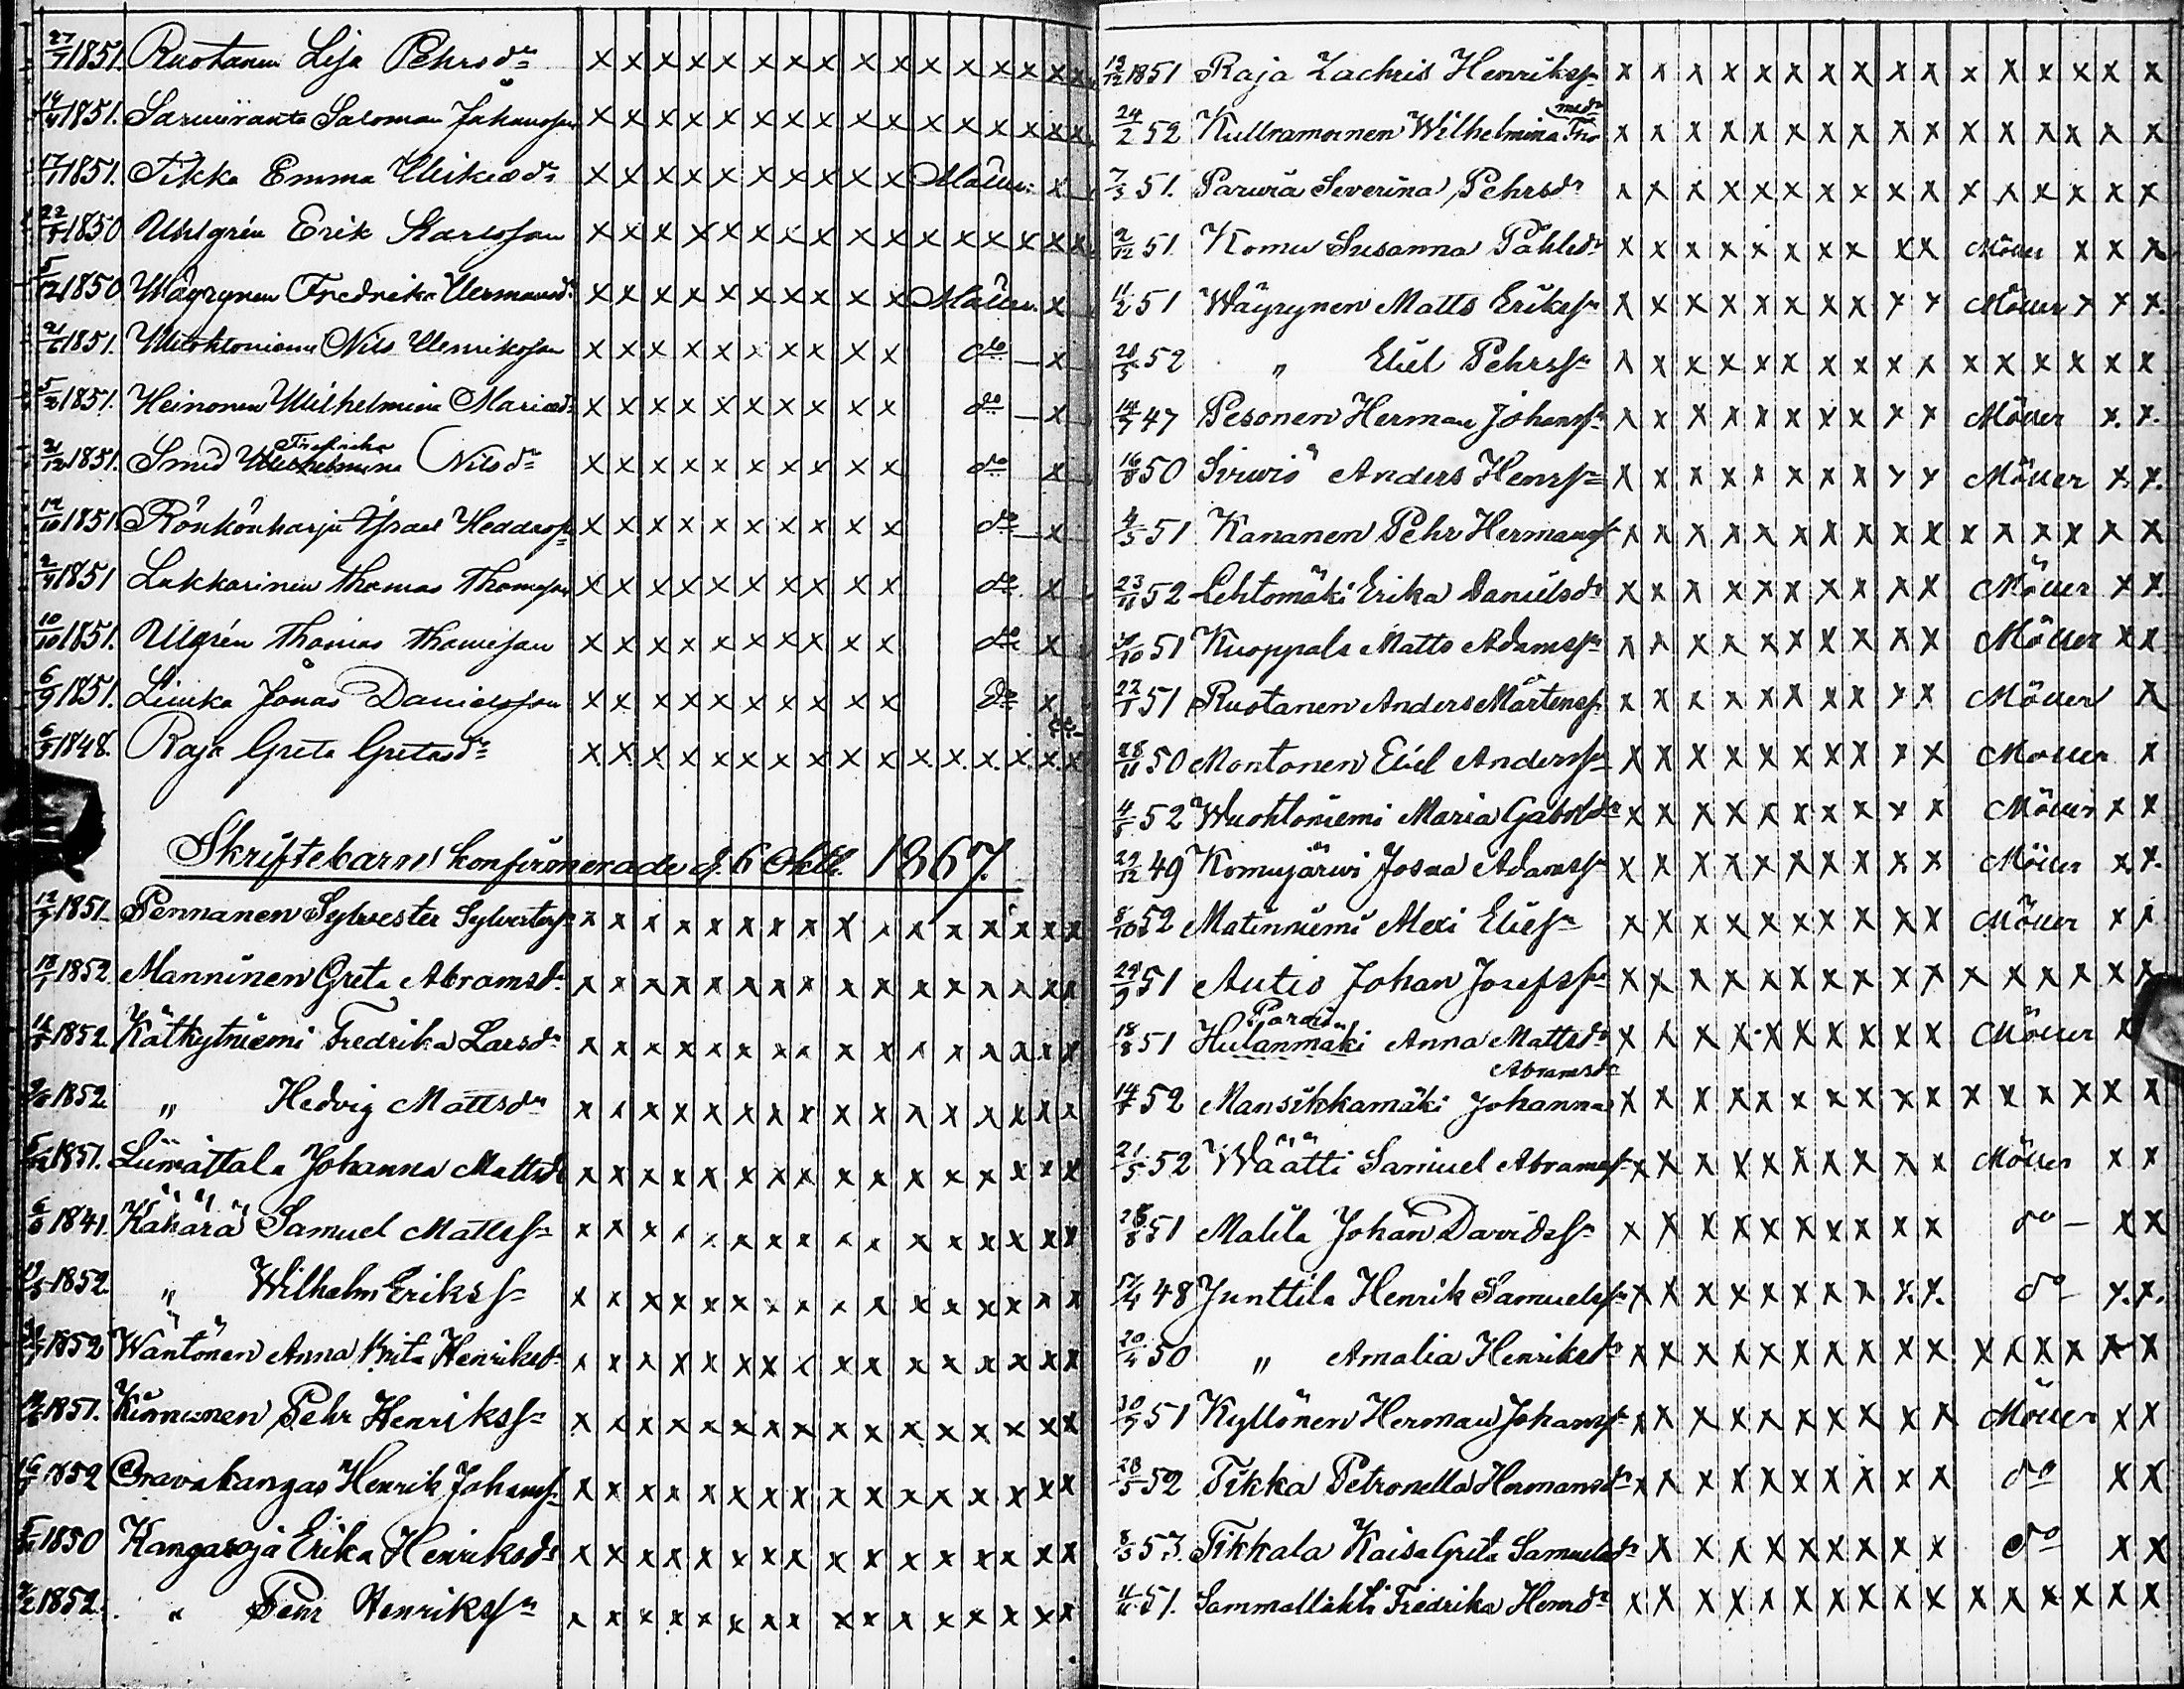 27/7 1851. Ruotanen Lisa Pehrsdr x x x x x x x x x x x x x x x x
14/4 1851. Saloman Johansson x x x x x x x x x x x x x x x x
17/7 1851. Tikka Emma x x x x x x x x x x x
22/1 1850 Erik Karlsson x x x x x x x x x x x x x x x x
5/12 1850 Wäyrynen Fredrika Hermansdr x x x x x x x x x x x
21/6 1851. Nils Henriksson x x x x x x x x x x do x
5/2 1851. Heinonen Wilhelmina Mariædr x x x x x x x x x x do x
Fredrika
21/12 1851. Smed Wilhelmina Nilsdr x x x x x x x x x x do x
14/10 1851 Rönkönharju x x x x x x x x x x do x
2/4 1851 Lukkarinen Thomas Thomasson x x x x x x x x x x do x
10/10 1851. Thomas Thomasson x x x x x x x x x x do x
6/9 1851. Jonas Danielsson x x x x x x x x x x do x
6/3 1848. Raja Greta Gretasdr x x x x x x x x x x x x x x x x
Skriftebarn konfirmerade d. 6 Oktb. 1867.
12/7 1851 Pennanen Sylvester Sylvestersn x x x x x x x x x x x x x x x x
18/1 1852 Manninen Greta Abramsdr x x x x x x x x x x x x x x x x
1852. Kätkytniemi Fredrika Larsdr x x x x x x x x x x x x x x x x
1852. „ Hedvig Mattsdr x x x x x x x x x x x x x x x x
1851. Liimattala Johanna Mattsdr x x x x x x x x x x x x x x x x
1841. Kähärä Samuel Mattssn x x x x x x x x x x x x x x x x
1852. „ Wilhelm Erikssn x x x x x x x x x x x x x x x x
1852 Wäntönen Anna Brita Henriksdr x x x x x x x x x x x x x x x x
1851. Kinnunen Pehr Henrikssn x x x x x x x x x x x x x x x x
1852 Oravakangas Henrik Johanssn x x x x x x x x x x x x x x x x
1850 Kangasoja Erika Henriksdr x x x x x x x x x x x x x x x x
1852. „ Pehr Henrikssn x x x x x x x x x x x x x x x x
12/12 1851 Raja Zachris Henrikssn x x x x x x x x x x x x x x x x
24/2 52 Wilhelmina x x x x x x x x x x x x x x x x
7/3 51. Severina Pehrsdr x x x x x x x x x x x x x x x x
2/12 51. Komu Susanna Påhlsdr x x x x x x x x x x Möller x x x
11/2 51 Wäyrynen Matts Erikssn x x x x x x x x x x Möller x x x
28/5 52 „ Eliel Pehrssn x x x x x x x x x x x x x x x x
14/7 47 Pesonen Herman Johanssn x x x x x x x x x x Möller x. x.
16/8 50 Sirwiö Anders Henrssn x x x x x x x x x x Möller x. x.
4/5 51 Kananen Pehr Hermanssn x x x x x x x x x x x x x x x x
23/11 52 Lehtomäki Erika Danielsdr x x x x x x x x x x Möller x x
51 Kuoppala Matts Adamssn x x x x x x x x x x Möller x x
22/1 51 Ruotanen Anders Mårtenssn x x x x x x x x x x Möller x
28/11 50 Montonen Eliel Anderssn x x x x x x x x x x Möller x
4/5 52 Wuohtoniemi Maria Gabrdr x x x x x x x x x x Möller x x
29/12 49 Komujärwi Josua Adamssn x x x x x x x x x x Möller x x.
8/10 52 Matinniemi Alexi Eliessn x x x x x x x x x x Möller x x
29/9 51 Autio Johan Josefssn x x x x x x x x x x x x x x x x
18/8 51 Anna Mattsdr x x x x x x x x x x Möller x
Abramsdr
14/4 52 Mansikkamäki Johanna x x x x x x x x x x x x x x x x
21/5 52 Wäätti Samuel Abramssn x x x x x x x x x x Möller x x
28/8 51 Malila Johan Davidssn x x x x x x x x x x do x x
48 Junttila Henrik Samuelssn x x x x x x x x x. x. do x. x.
20/4 50 „ Amalia Henriksdr x x x x x x x x x x x x x x x x
30/9 51 Kyllönen Herman Johanssn x x x x x x x x x x Möller x x
28/5 52 Tikka Petronella Hermansdr x x x x x x x x x x do x x
8/3 53. Tikkala Kaisa Greta Samuelsdr x x x x x x x x x do x x
51. Sammallahti Fredrika Henrdr x x x x x x x x x x x x x x x x